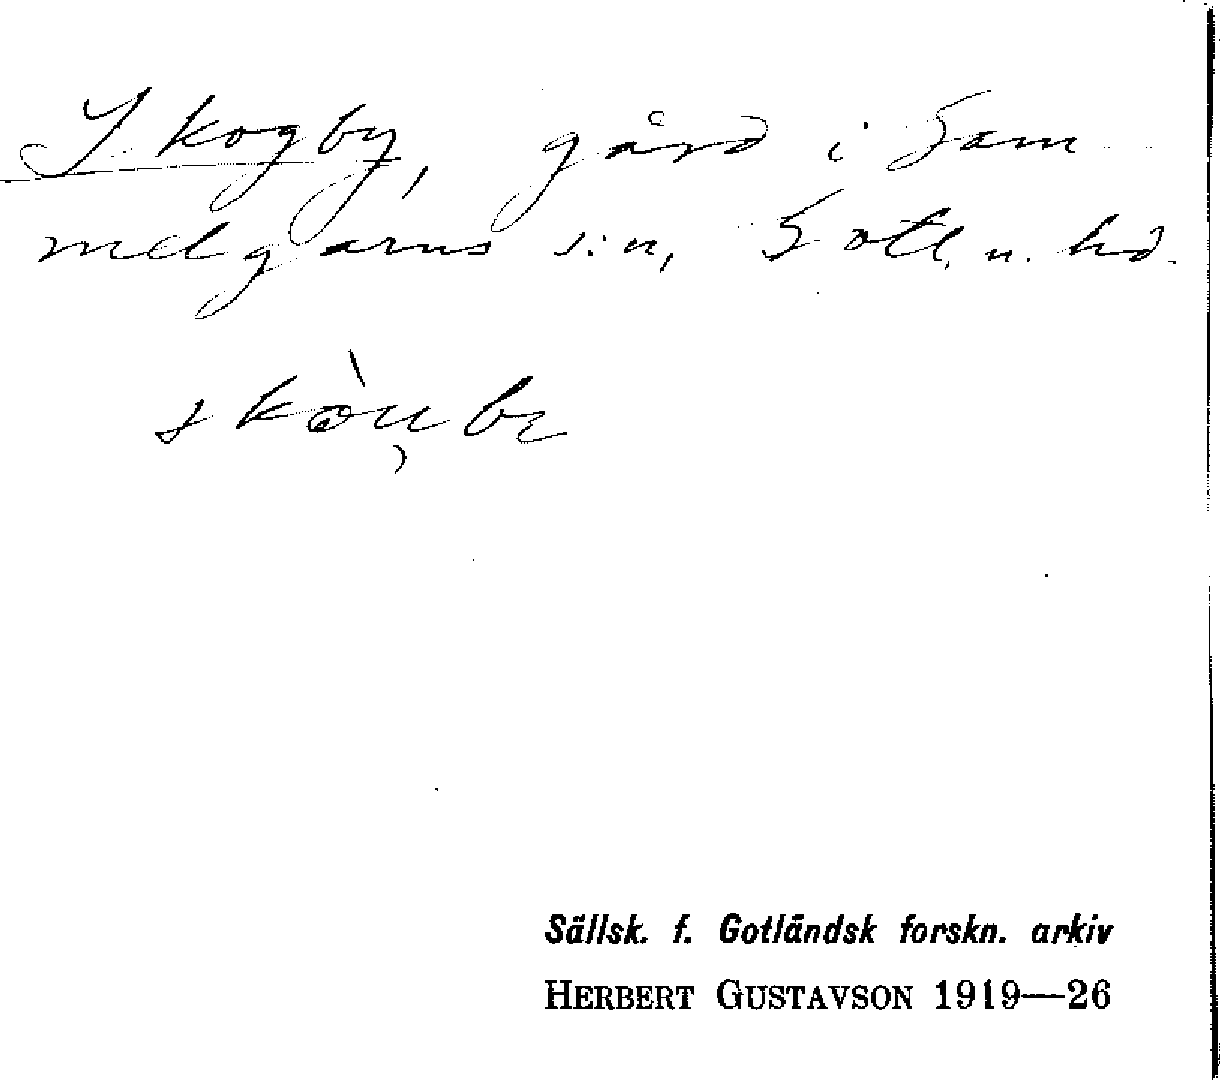 Skogby, gård i Gam
melgarns s:n, Gotl. n. hd.
Sällsk. f. Gotländsk forskn. arkiv
HERBERT GUSTAVSON 1919—26